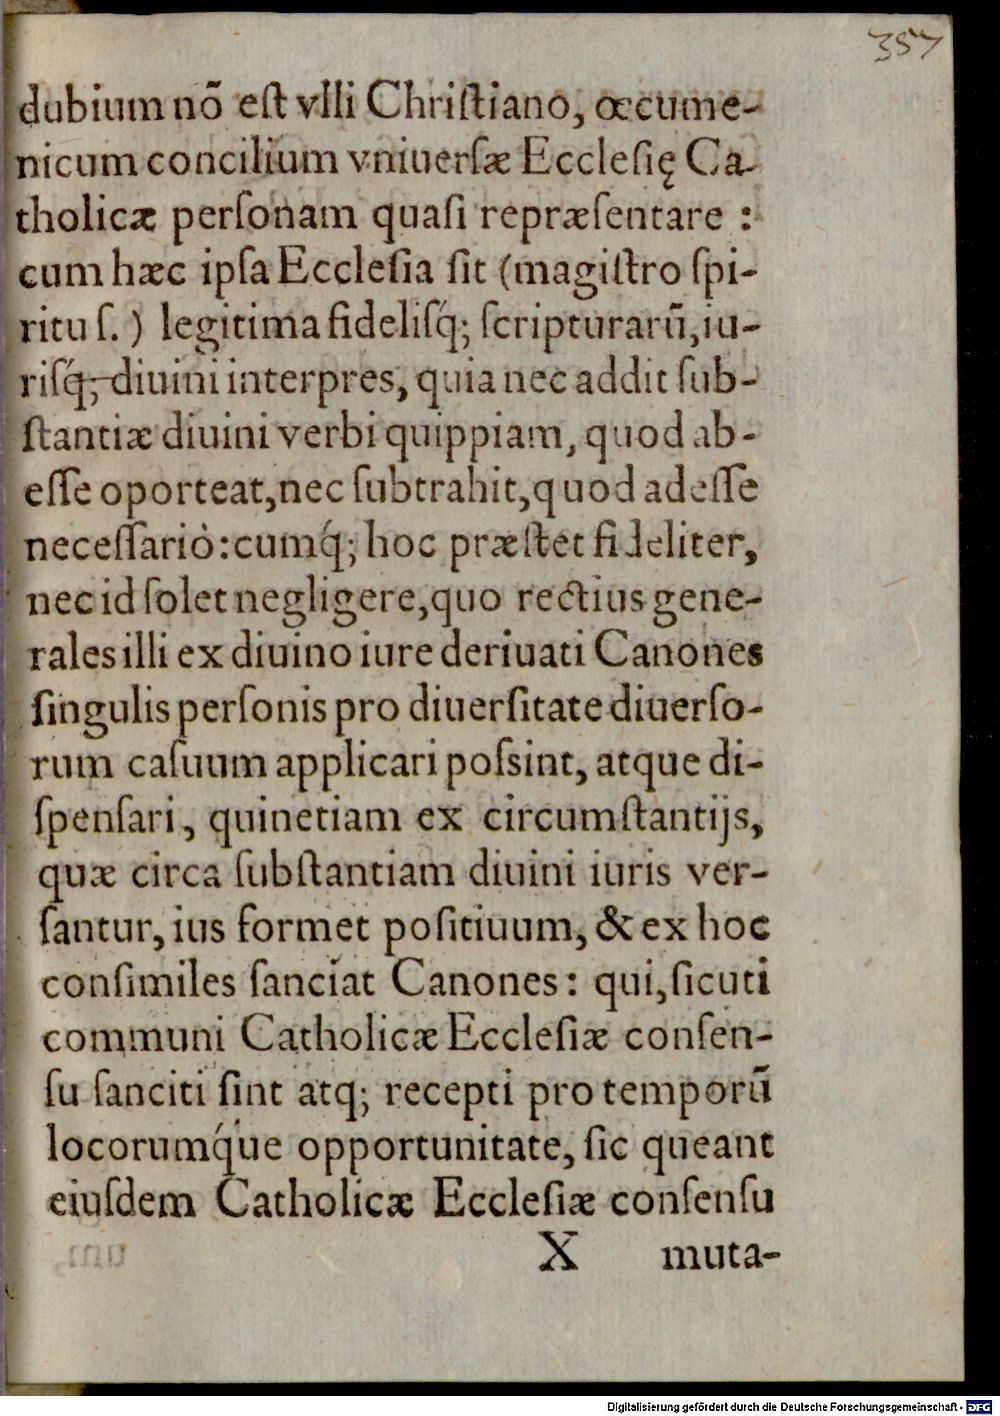 357
dubium nõ eſt vlli Chriſtiano, œcume-
nicum concilium vniuerſæ Eccleſię Ca-
tholicæ perſonam quaſi repræſentare :
cum hæc ipſa Eccleſia ſit (magiſtro ſpi-
ritu ſ.) legitima fideliſq́; ſcripturarũ, iu-
riſq́; diuini interpres, quia nec addit ſub-
ſtantiæ diuini verbi quippiam, quod ab-
eſſe oporteat, nec ſubtrahit, quod adeſſe
neceſſariò: cumq́; hoc præſtet fideliter,
nec id ſolet negligere, quo rectius gene-
rales illi ex diuino iure deriuati Canones
ſingulis perſonis pro diuerſitate diuerſo-
rum caſuum applicari poſsint, atque di-
ſpenſari, quinetiam ex circumſtantijs,
quæ circa ſubſtantiam diuini iuris ver-
ſantur, ius formet poſitiuum, & ex hoc
conſimiles ſanciat Canones: qui, ſicuti
communi Catholicæ Eccleſiæ conſen-
ſu ſanciti ſint atq; recepti pro temporũ
locorumq́ue opportunitate, ſic queant
eiuſdem Catholicæ Eccleſiæ conſenſu
X muta-
Digitalisierung gefördert durch die Deutsche Forschungsgemeinschaft - DFG